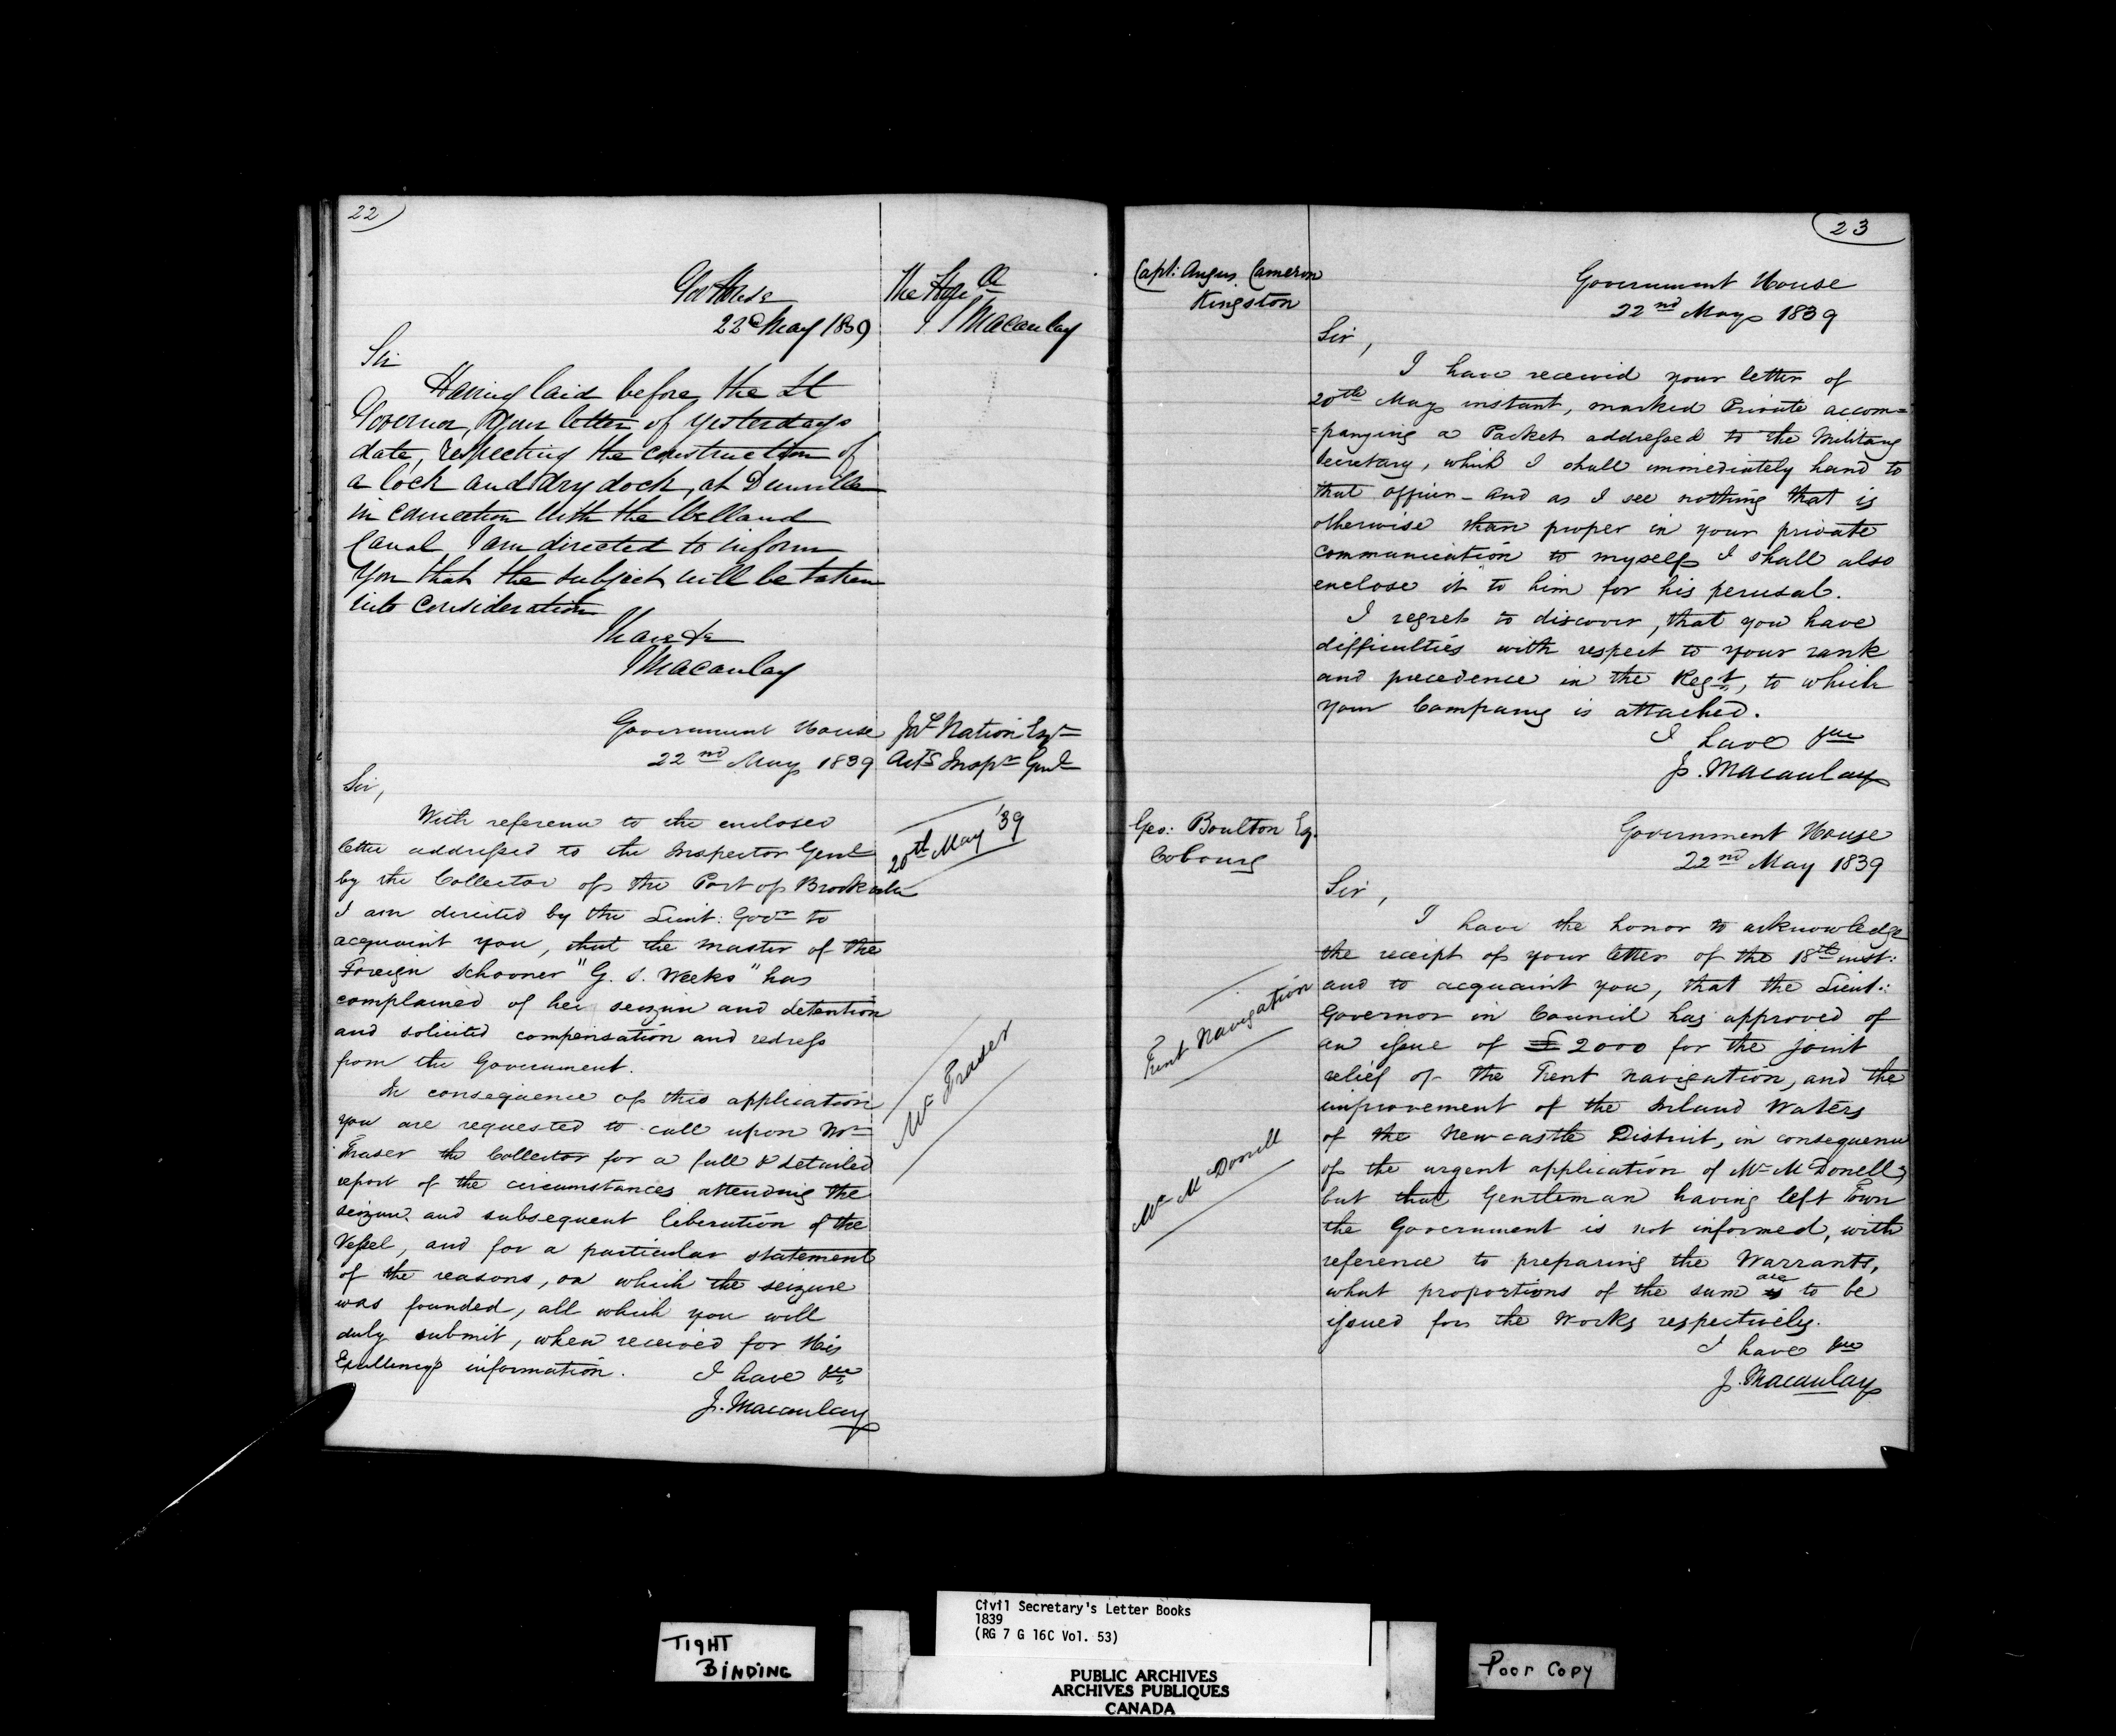 22
Gov House
22d May 1839
The Honble
J Macaulay
Sir
Having laid before the Lt
Governor, your letter of yesterdays
date, respecting the construction of
a lock and dry dock, at Dunnville
in connection with the Welland
Canal I am directed to inform
you that the subject will be taken
into consideration
I have &c
J Macaulay
Government House
22nd May 1839
Jas Nation Esqr
Actg Inspr Genl
Sir,
With reference to the enclosed
letter addressed to the Inspector Genl
20th May '39
by the Collector of the Port of Brockville
I am directed by the Lieut: Govr to
acquaint you, that the master of the
Foreign Schooner "G. S. Weeks" has
complained of her seizure and detention
and solicited compensation and redress
from the Government.
In consequence of this application
you are requested to call upon Mr
Mr Fraser
Fraser the Collector for a full & detailed
report of the circumstances attending the
seizure and subsequent liberation of the
Vessel, and for a particular statement
of the reasons, on which the seizure
was founded, all which you will
duly submit, when received for His
Excellency's information.
I have &c
J. Macaulay
23
Capt: Angus Cameron
Kingston
Government House
22nd May 1839
Sir,
I have received your letter of
20th May instant, marked Private accom=
=panying a Packet addressed to the Military
Secretary, which I shall immediately hand to
that officer - and as I see nothing that is
otherwise than proper in your private
communication to myself I shall also
enclose it to him for his perusal.
I regret to discover, that you have
difficulties with respect to your rank
and precedence in the Regt, to which
your Company is attached.
I have &c
J. Macaulay
Geo: Boulton Eq.
Cobourg
Government House
22nd May 1839
Sir,
I have the honor to acknowledge
the receipt of your letter of the 18th inst:
and to acquaint you, that the Lieut:
Governor in Council has approved of
an issue of £2000 for the joint
Trent Navigation
relief of the Trent navigation, and the
improvement of the Inland Waters
of the Newcastle District, in consequence
of the urgent application of Mr McDonell;
Mr McDonell
but that Gentleman having left Town
the Government is not informed, with
reference to preparing the Warrants,
what proportions of the sum is are to be
issued for the Works respectively.
I have &c
J. Macaulay
TIGHT
BINDING
Civil Secretary's Letter Books
1839
(RG 7 G 16C Vol. 53)
PUBLIC ARCHIVES
ARCHIVES PUBLIQUES
CANADA
Poor Copy